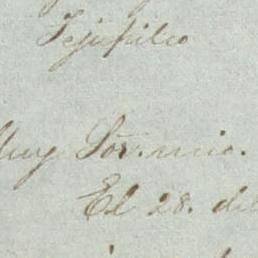 Tejupilco
Muy Sor. mio.
El 28. del